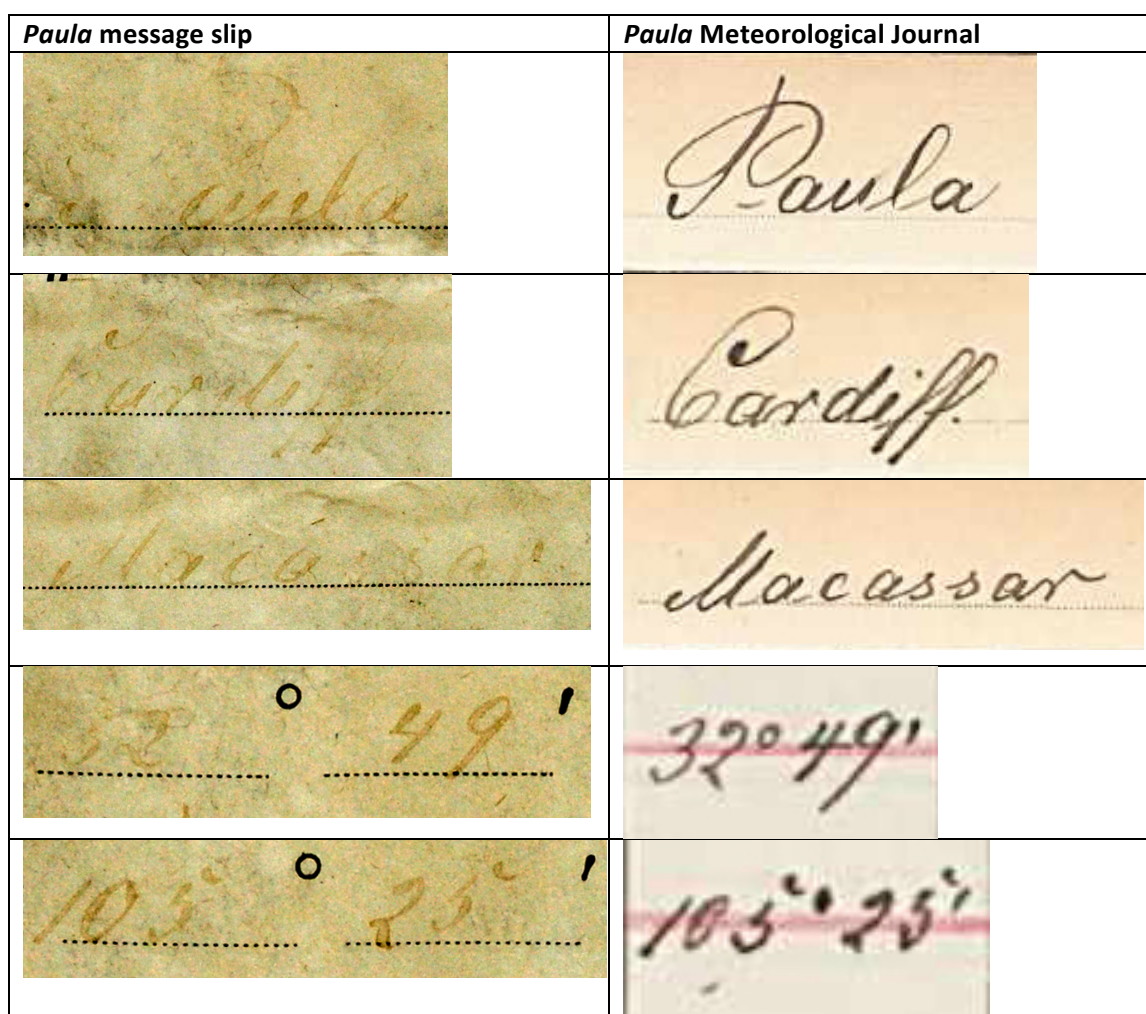 Paula message slip Paula Meteorological Journal
Paula Paula
Cardiff Cardiff.
Macassar Macassar
32° 49' 32° 49'
105° 25' 105° 25'